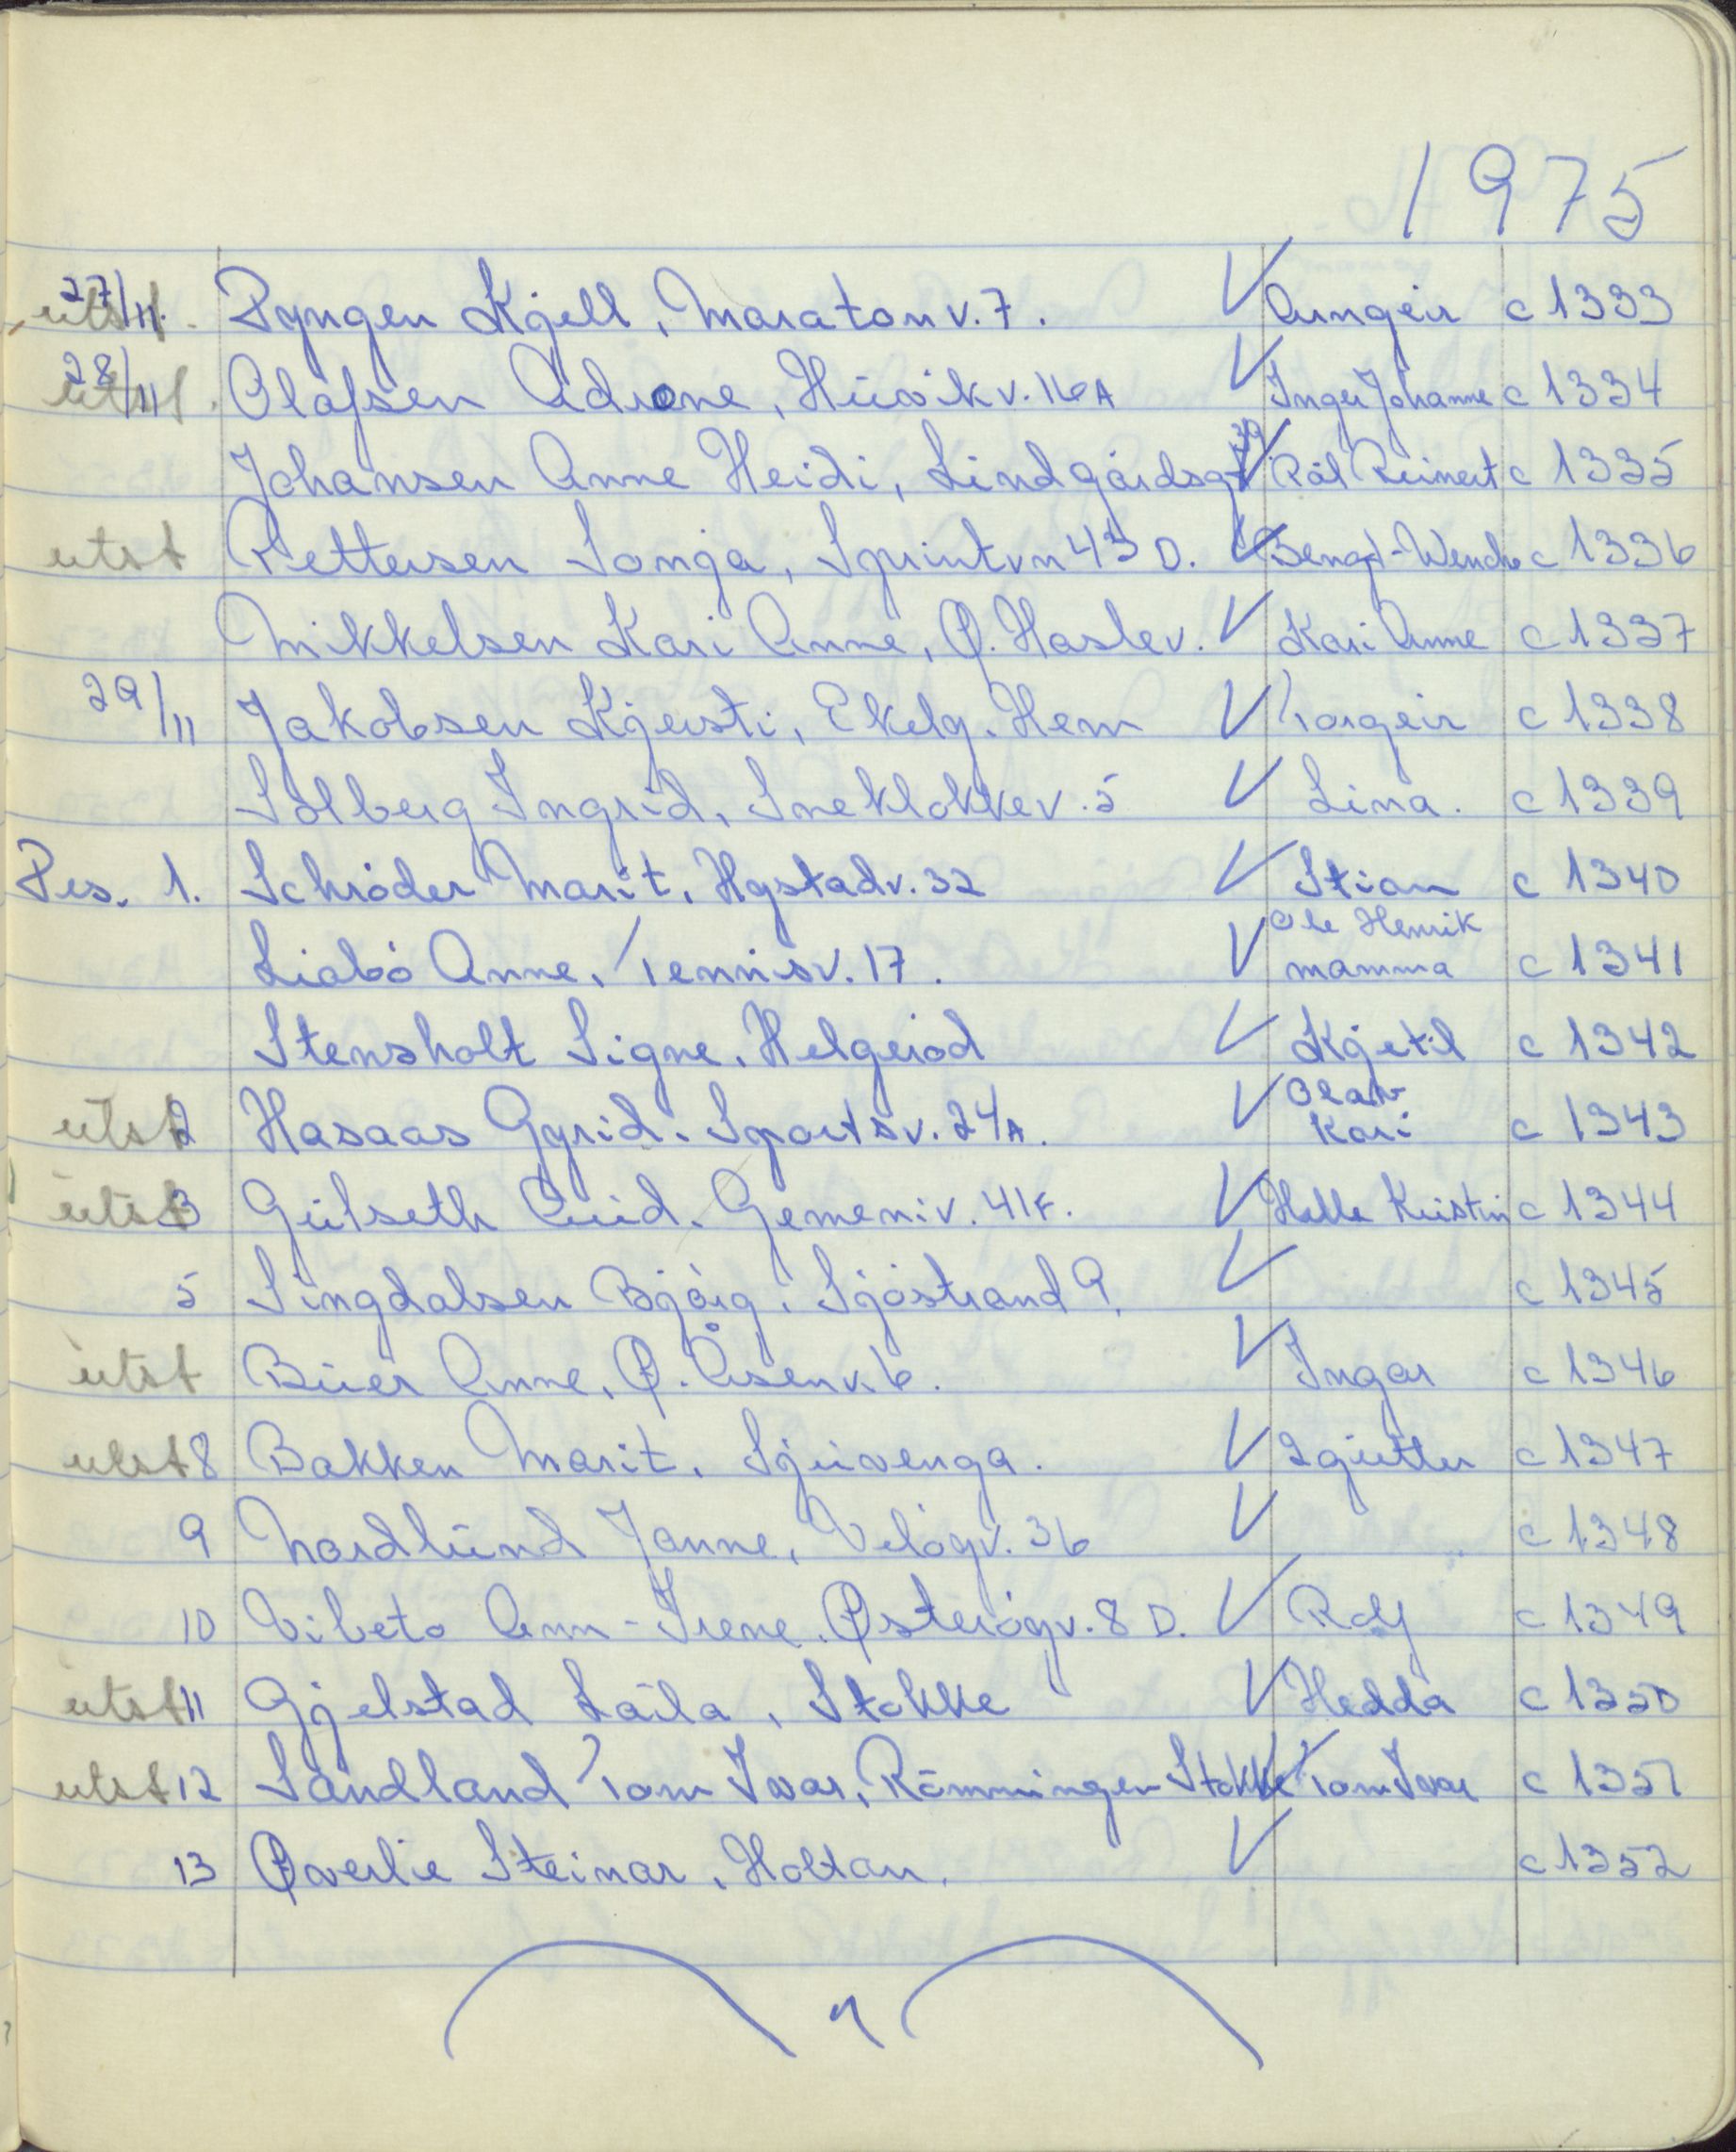 1975
27/11 utst. Pyngen Kjell, Maratonv. 7. ✓ Arngeir c 1333
28/11 utst. Olafsen Adrone, Husvikv. 16A ✓ Inger Johanne c 1334
Johansen Anne Heidi, Lindgårdsgt 39 ✓ Pål Reinert c 1335
utst Pettersen Sonja, Sprintvn 43 D. ✓ Bengt-Wenche c 1336
Mikkelsen Kari Anne, Ø. Haslev. ✓ Kari Anne c 1337
29/11 Jakobsen Kjersti, Ekelg. Hem ✓ Torgeir c 1338
Solberg Ingrid, Sneklokkev. 5 ✓ Lina. c 1339
Des. 1. Schrøder Marit, Hystadv. 32 ✓ Stian c 1340
Liabø Anne, Tennisv. 17. ✓ Ole Henrik mamma c 1341
Stensholt Signe, Helgerød ✓ Kjetil c 1342
utst 2 Hasaas Gyrid. Sportsv. 24A. ✓ Olav Kari c 1343
utst 3 Gulseth Aud. Gemeniv. 41F. ✓ Helle Kristin c 1344
5 Lingdalsen Bjørg, Sjøstrand 9. ✓ c 1345
utst Buer Anne, Ø. Åsenv. 6. ✓ Ingar c 1346
utst 8 Bakken Marit, Sjuvenga. ✓ 2 gutter c 1347
9 Nordlund Janne, Veløgv. 36 ✓ c 1348
10 Vibeto Ann-Irene, Østerøyv. 8 D. ✓ Rolf c 1349
utst 11 Gjelstad Laila, Stokke ✓ Hedda c 1350
utst 12 Sandland Tom Ivar, Rømmingen Stokke ✓ Tom Ivar c 1351
13 Øverlie Steinar, Holtan. ✓ c 1352